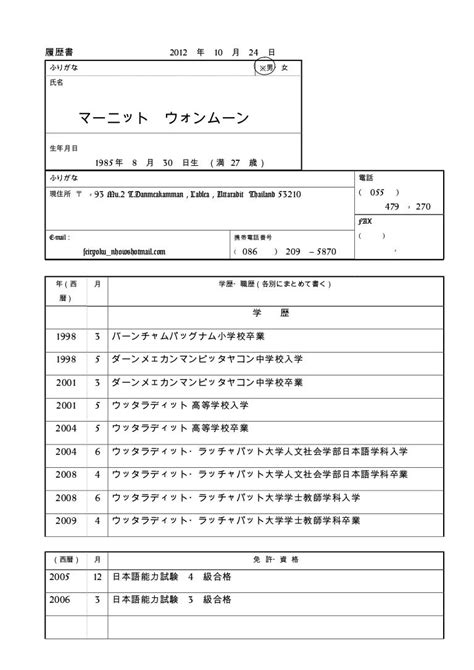 履歴書 2012 年 10 月 24 日
ふりがな ※男・女
氏名
マーニット ウォンムーン
生年月日
1985 年 8 月 30 日生 (満 27 歳)
ふりがな 電話
現住所 〒 ・93 Mu.2 T.Danmeakamman , Lablea , Uttaradit Thailand 53210 ( 055 )
479 , 270
FAX
E-mail : 携帯電話番号 ( )
feirgoku_nhowshotmail.com ( 086 ) 209 -5870 ,
年(西暦) 月 学歴・職歴(各別にまとめて書く)
学 歴
1998 3 バーンチャムパッグナム小学校卒業
1998 5 ダーンメェカンマンピッタヤコン中学校入学
2001 3 ダーンメェカンマンピッタヤコン中学校卒業
2001 5 ウッタラディット 高等学校入学
2004 5 ウッタラディット 高等学校卒業
2004 6 ウッタラディット・ラッチャパット大学人文社会学部日本語学科入学
2008 4 ウッタラディット・ラッチャパット大学人文社会学部日本語学科卒業
2008 6 ウッタラディット・ラッチャパット大学学士教師学科入学
2009 4 ウッタラディット・ラッチャパット大学学士教師学科卒業
(西暦) 月 免 許・資 格
2005 12 日本語能力試験 4 級合格
2006 3 日本語能力試験 3 級合格